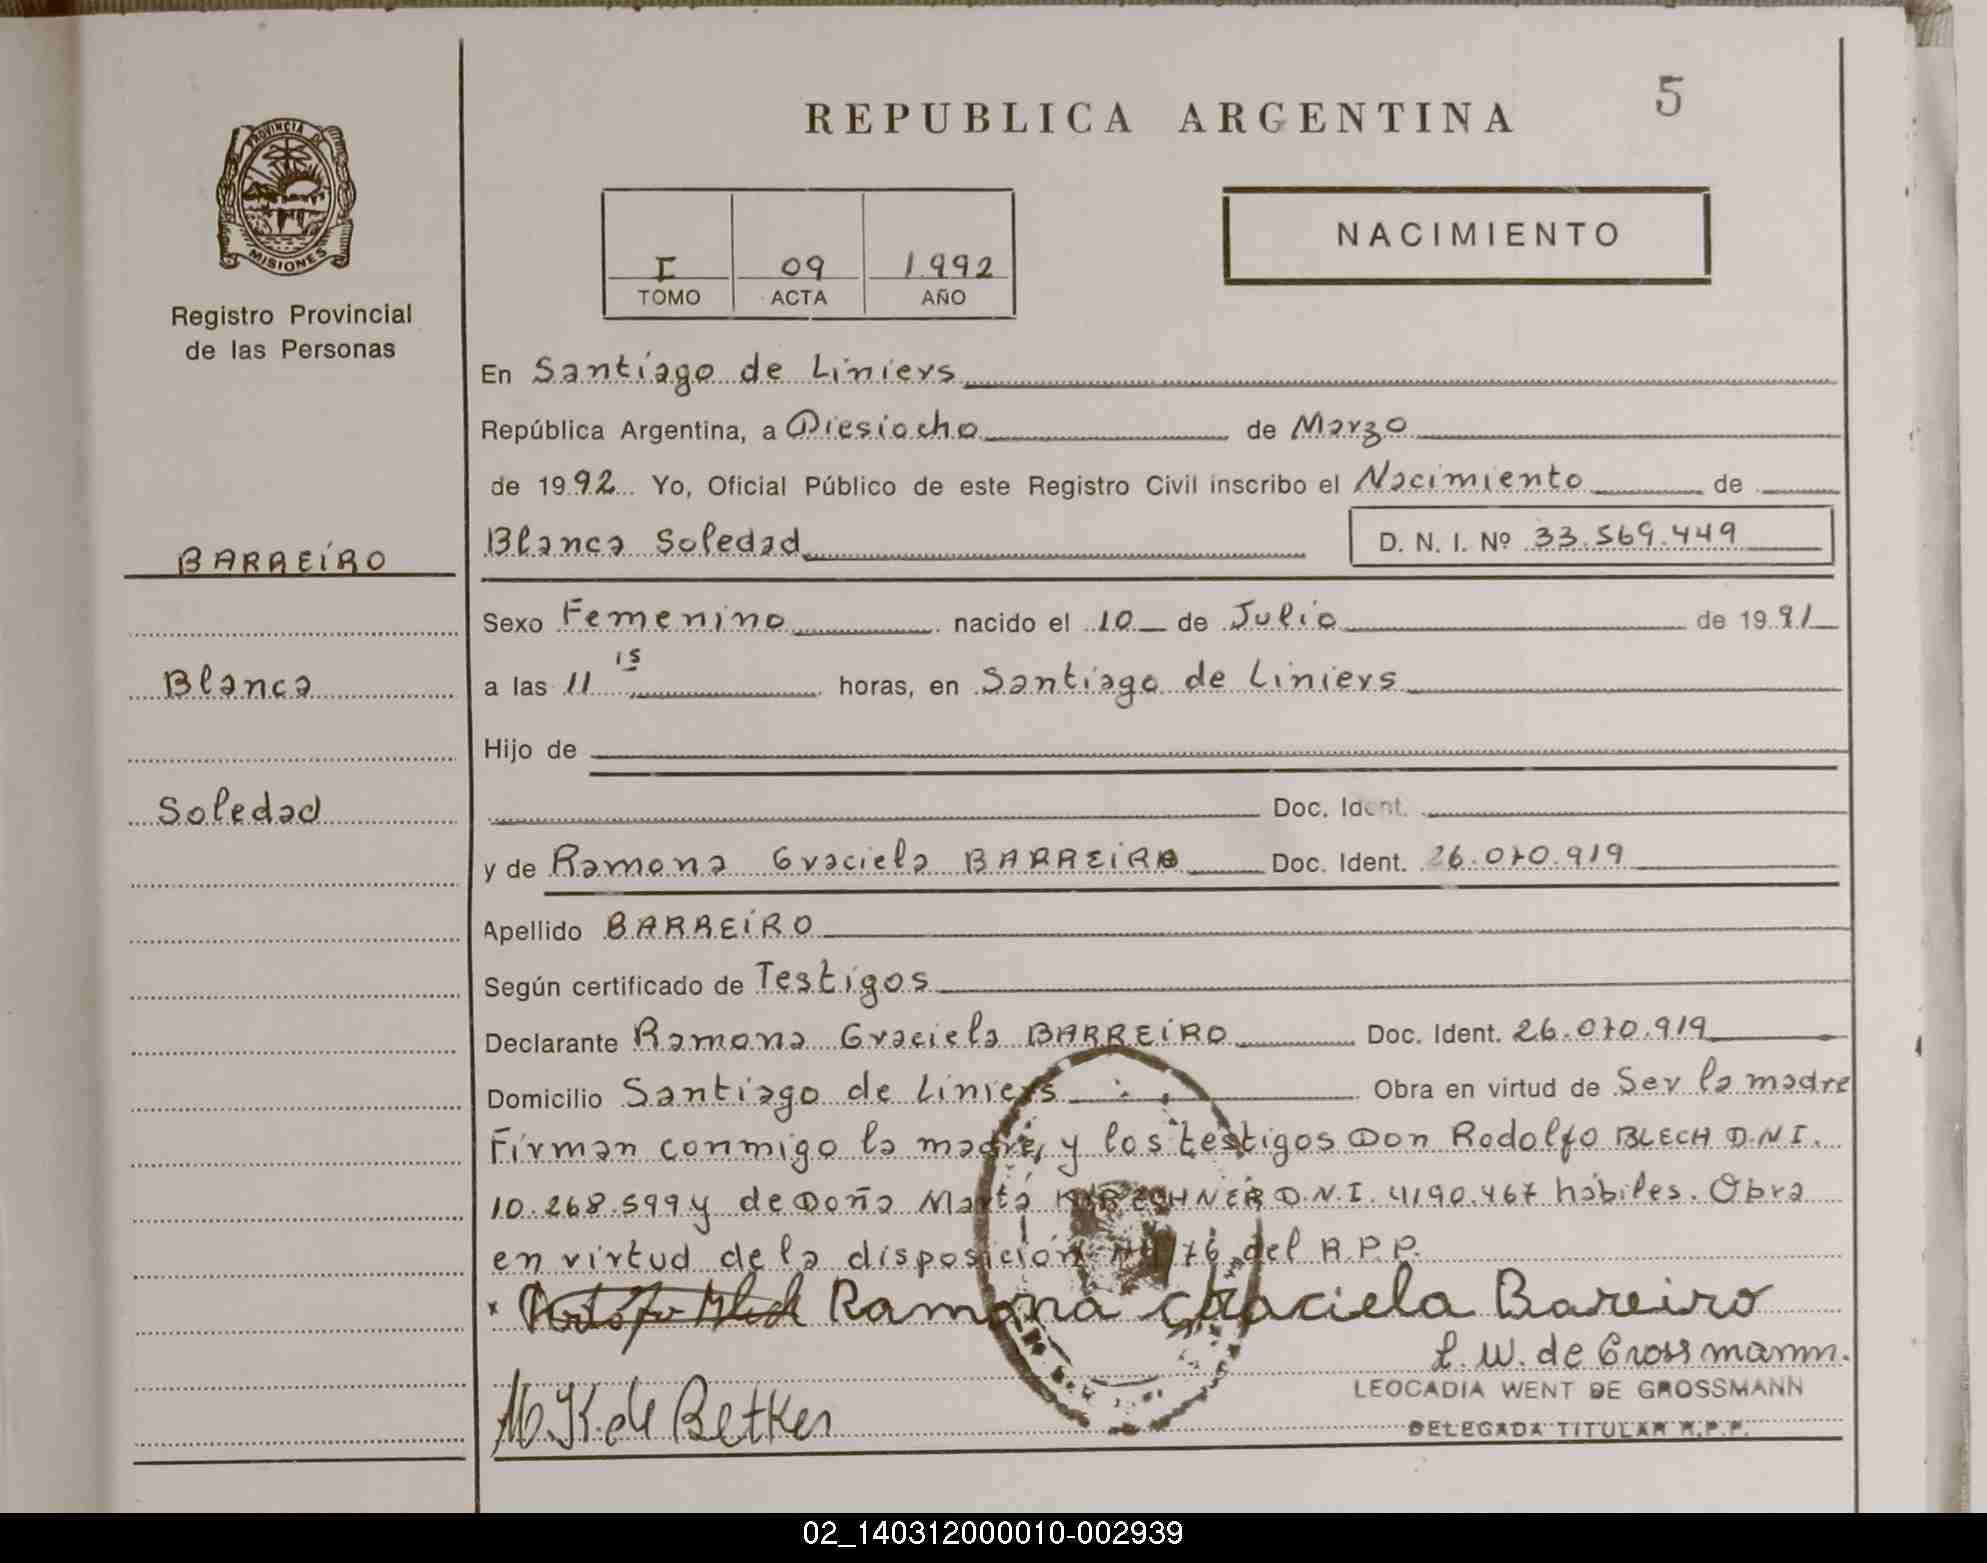 5
REPUBLICA ARGENTINA
PROVINCIA DE
MISIONES
Registro Provincial
de las Personas
NACIMIENTO
I 09 1.992
TOMO ACTA AÑO
En Santiago de Liniers
República Argentina, a Diesiocho de Marzo
de 1992 Yo, Oficial Público de este Registro Civil inscribo el Nacimiento de
Blanca Soledad D. N. I. Nº 33.569.449
BARREIRO
Sexo Femenino nacido el 10 de Julio de 1991
Blanca
a las 11 15 horas, en Santiago de Liniers
Hijo de
Soledad
Doc. Ident.
y de Ramona Graciela BARREIRO Doc. Ident. 26.070.919
Apellido BARREIRO
Según certificado de Testigos
Declarante Ramona Graciela BARREIRO Doc. Ident. 26.070.919
Domicilio Santiago de Liniers Obra en virtud de Ser la madre
Firman conmigo la madre, y los testigos Don Rodolfo BLECH D.N.I.
10.268.599 y de Doña Marta D.N.I. 4190.467 hábiles. Obra
en virtud de la disposición 76 del R.P.P.
x Rodolfo Blech Ramona Graciela Bareiro
L. W. de Grossmann.
LEOCADIA WENT DE GROSSMANN
M. K. de Betker
DELEGADA TITULAR R.P.P.
02_140312000010-002939